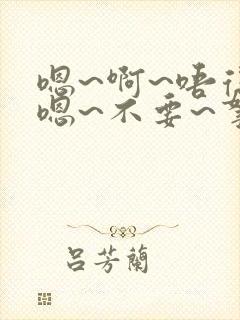 嗯~啊~唔
嗯~不要~
吕芳蘭